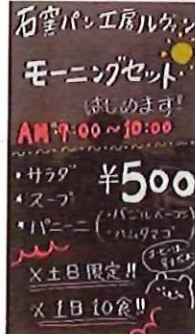 石窯パン工房ルヴァン
モーニングセット
はじめます!
AM 9:00~10:00
・サラダ
・スープ
・パニーニ(・バジルベーコン
・ハムタマゴ)
¥500
×土日限定!!
×1日10食!!